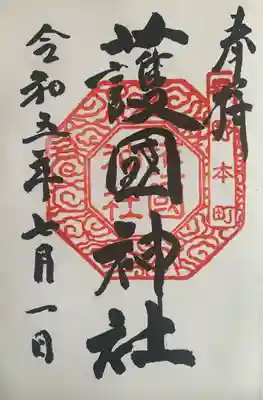 奉拝
本町
護國神社
令和五年七月一日